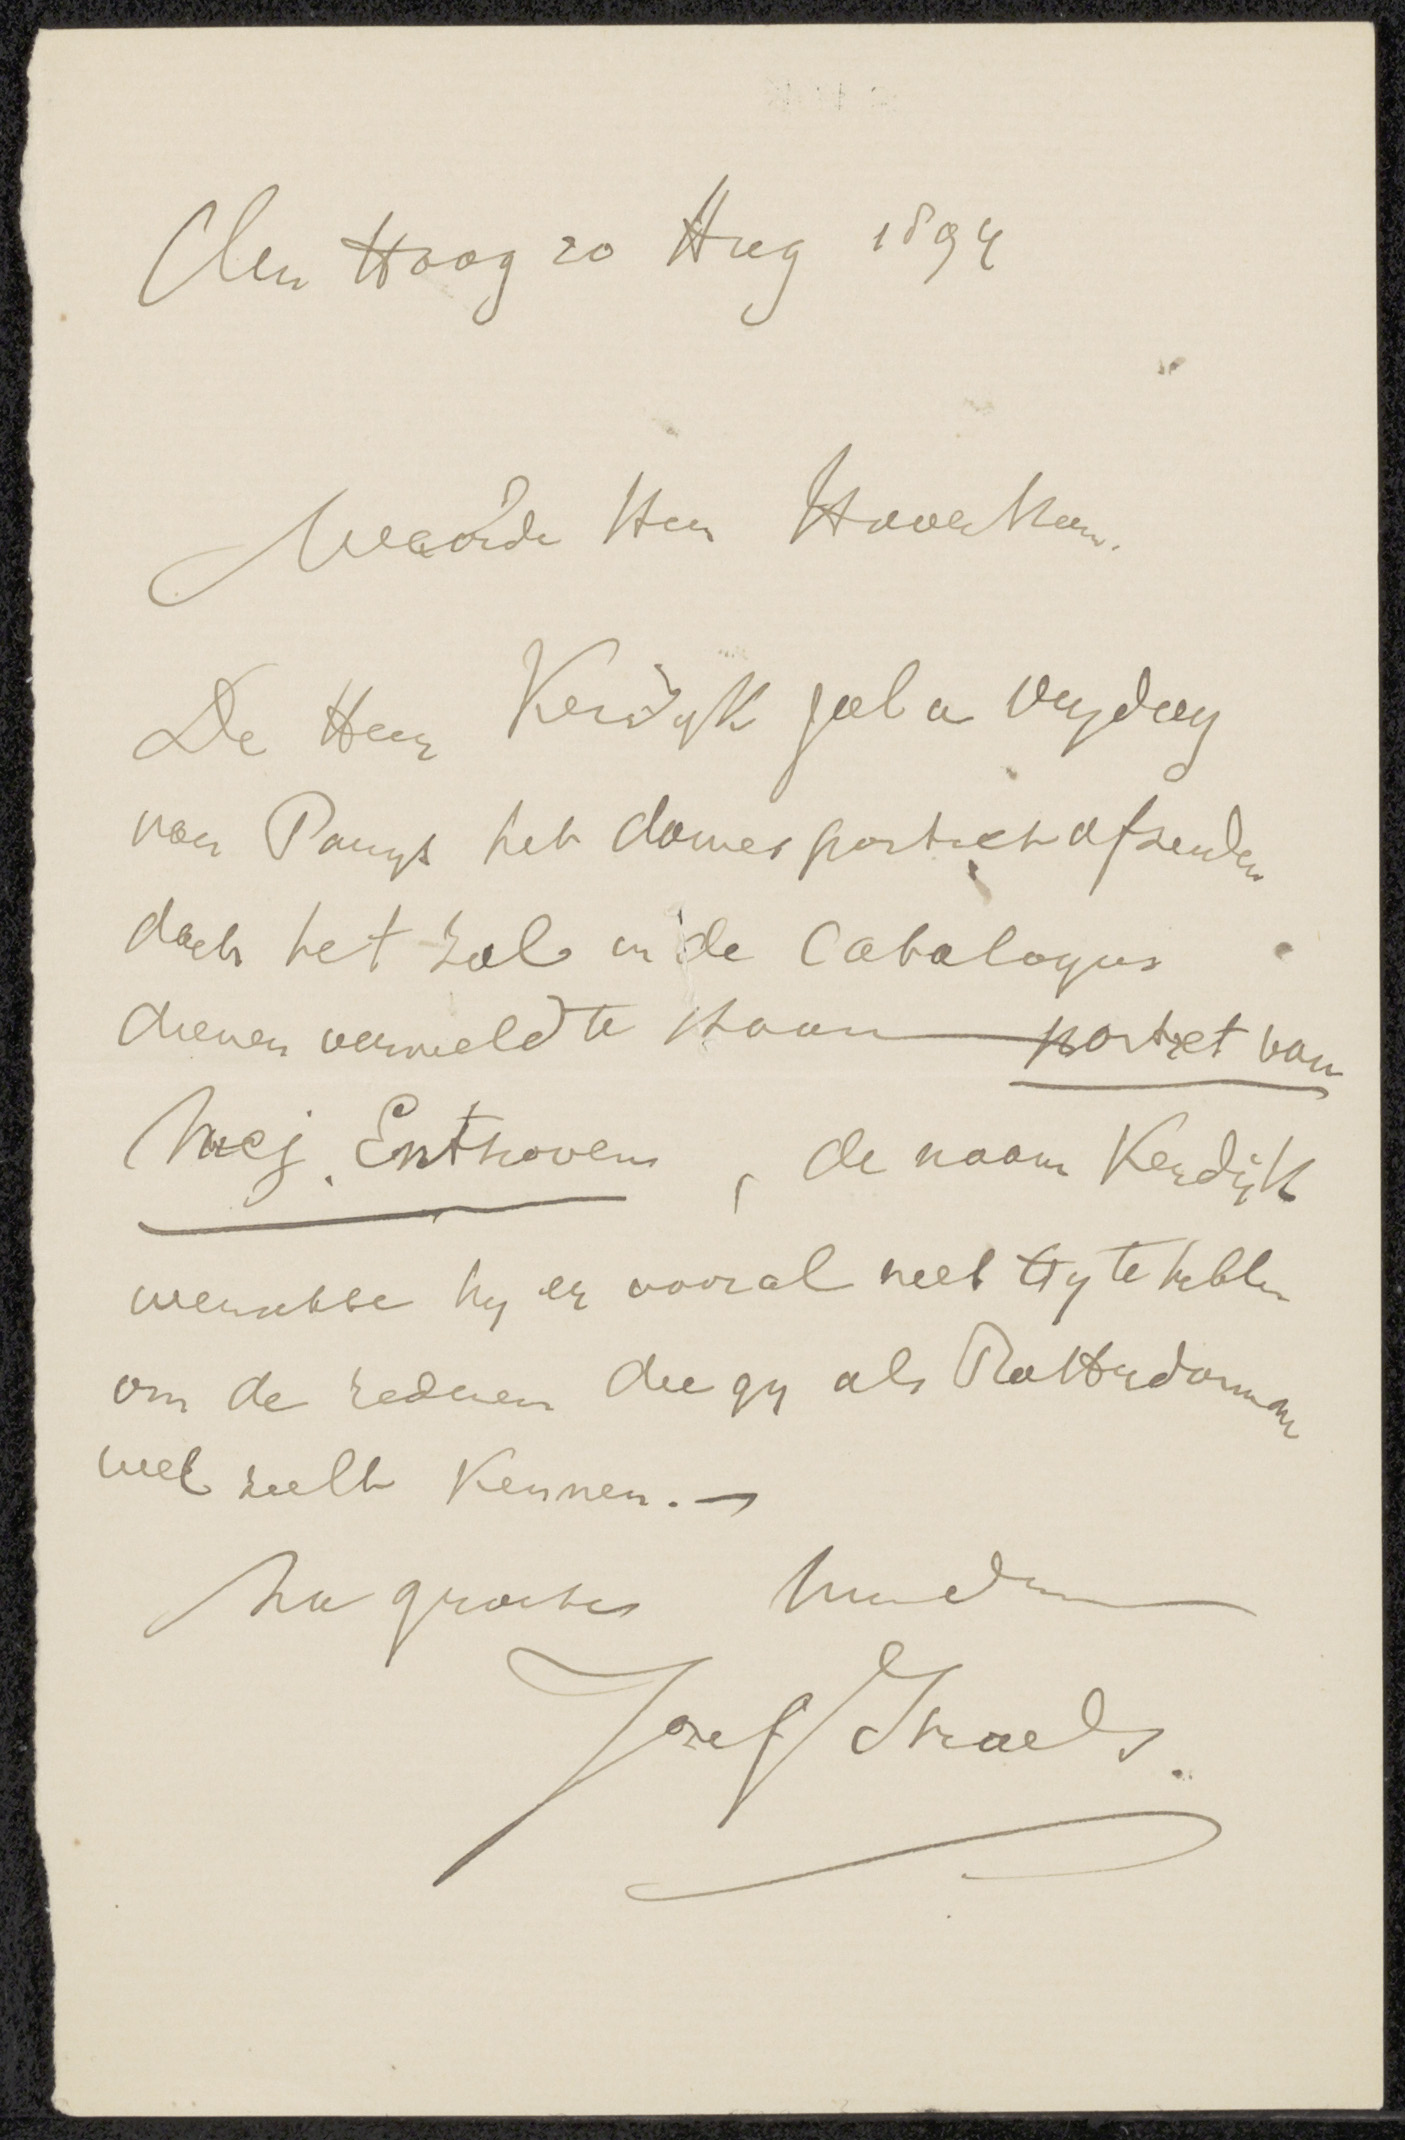 Den Haag 20 Aug 1894
Waarde Heer Haverkorn.
De Heer Kerdijk zal u Vrydag
van Parys het dames portret afzenden
doch het zal in de Catalogus
dienen vermeld te staan portret van
Mej. Enthoven, de naam Kerdijk
wenschte hy er vooral niet by te hebben
om de redenen die gy als Rotterdammer
wel zult kennen. —
Na groeten
Jozef Israels.